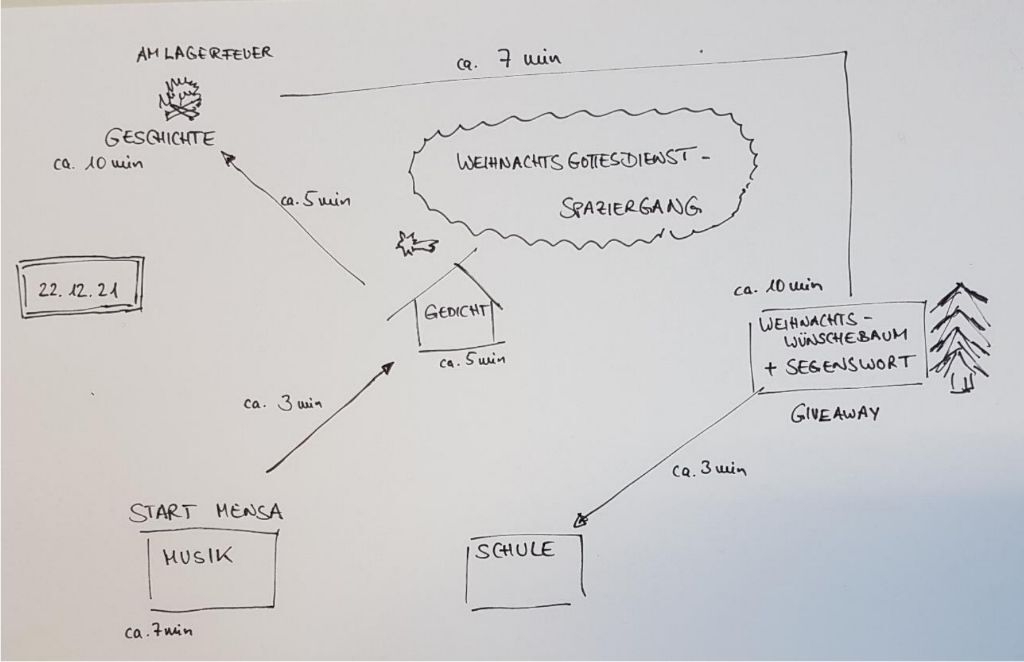 AM LAGERFEUER
GESCHICHTE
ca. 10 min
ca. 7 min
WEIHNACHTSGOTTESDIENST-
SPAZIERGANG
ca. 5 min
22.12.21
GEDICHT
ca. 5 min
ca. 10 min
WEIHNACHTS-
WÜNSCHEBAUM
+ SEGENSWORT
GIVEAWAY
ca. 3 min
ca. 3 min
START MENSA
MUSIK
ca. 7 min
SCHULE